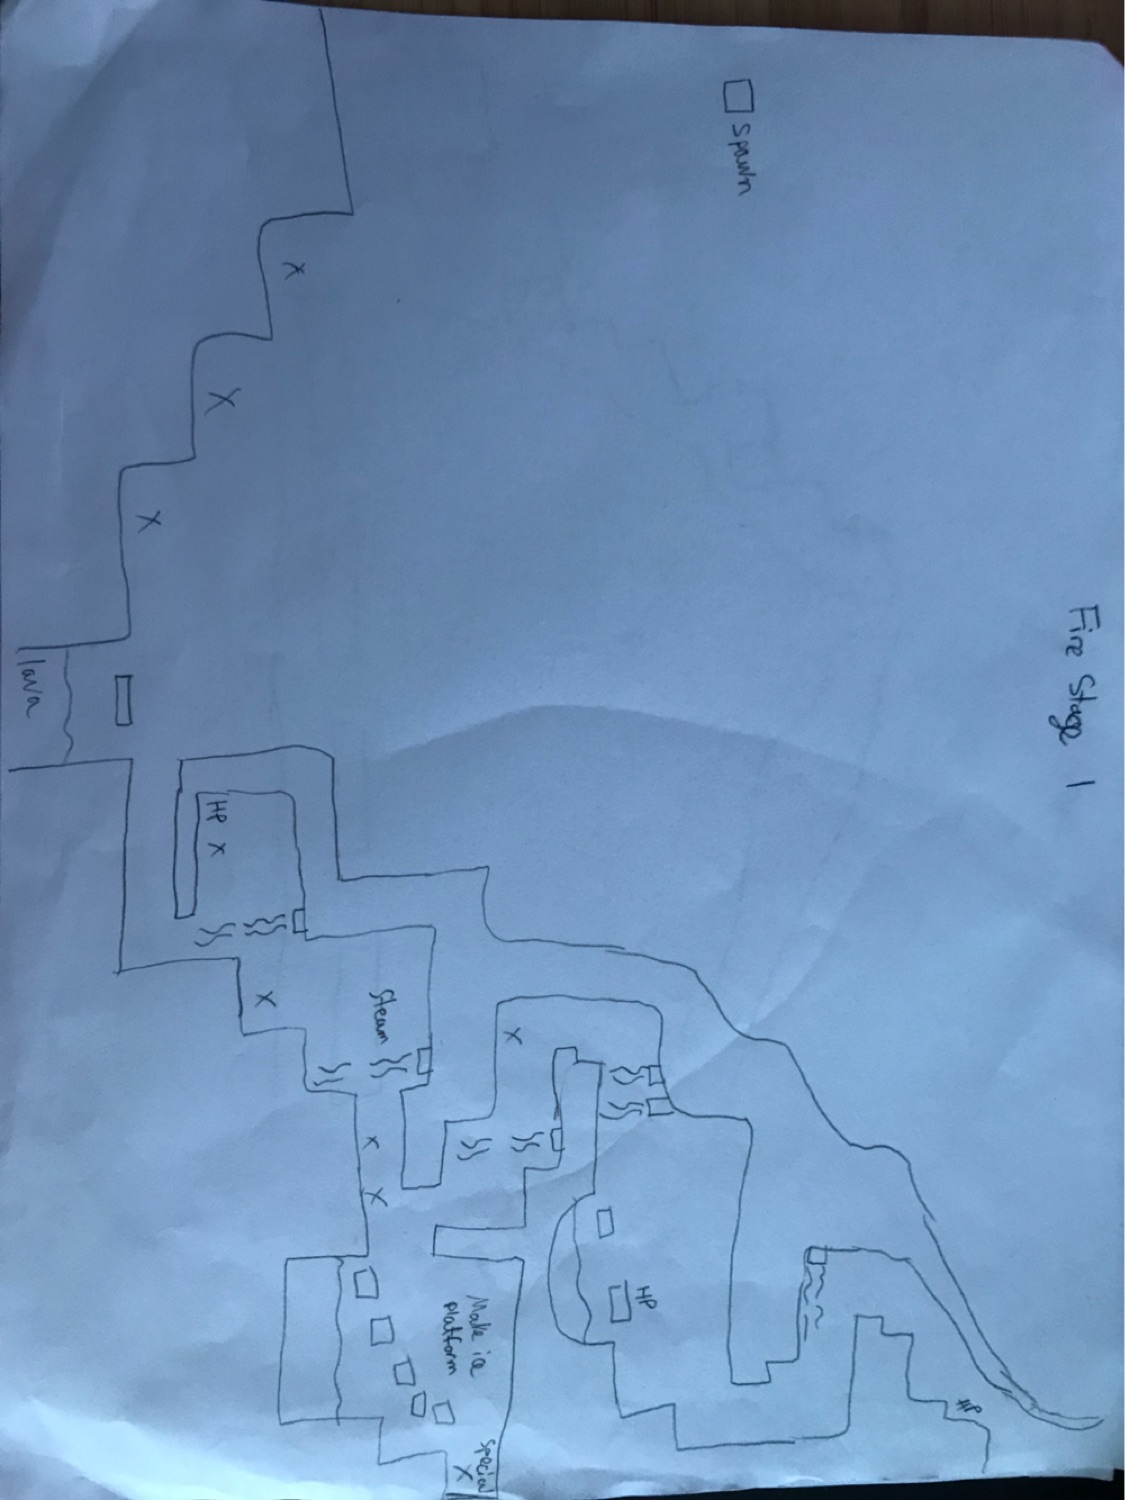 Fire Stage 1
HP
spawn
HP
x
Make ice
platform
special
x
steam
x x
x
x
HP x
x
x
lava